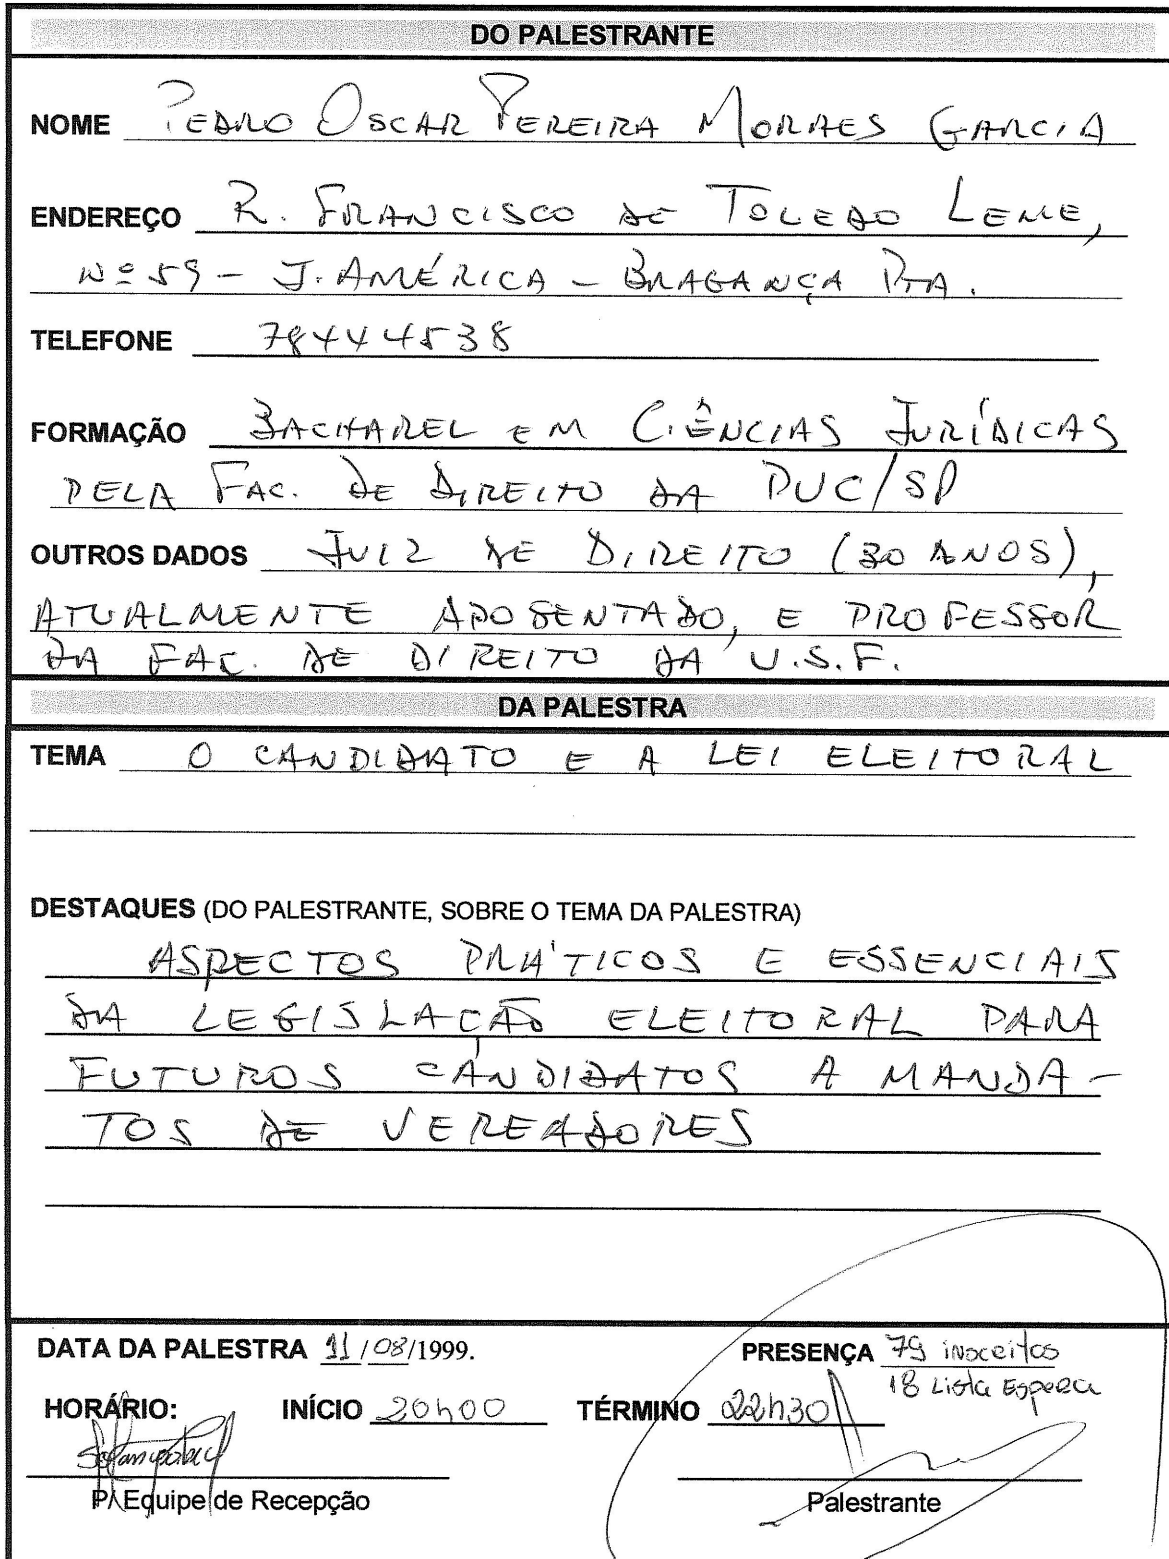 DO PALESTRANTE
NOME PEDRO OSCAR PEREIRA MORAES GARCIA
ENDEREÇO R. FRANCISCO DE TOLEDO LEME,
Nº 59 - J. AMÉRICA - BRAGANÇA PTA.
TELEFONE 78444538
FORMAÇÃO BACHAREL EM CIÊNCIAS JURÍDICAS
PELA FAC. DE DIREITO DA PUC/SP
OUTROS DADOS JUIZ DE DIREITO (30 ANOS),
ATUALMENTE APOSENTADO, E PROFESSOR
DA FAC. DE DIREITO DA U.S.F.
DA PALESTRA
TEMA O CANDIDATO E A LEI ELEITORAL
DESTAQUES (DO PALESTRANTE, SOBRE O TEMA DA PALESTRA)
ASPECTOS PRÁTICOS E ESSENCIAIS
DA LEGISLAÇÃO ELEITORAL PARA
FUTUROS CANDIDATOS A MANDA-
TOS DE VEREADORES
DATA DA PALESTRA 11/08/1999.
PRESENÇA 79 inscritos
18 Lista Espera
HORÁRIO: INÍCIO 20h00 TÉRMINO 22h30
P/ Equipe de Recepção
Palestrante